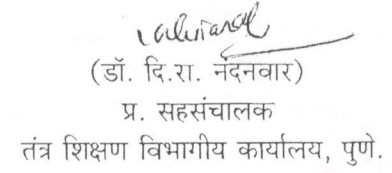 (डॉ. दि.रा. नंदनवार)
प्र. सहसंचालक
तंत्र शिक्षण विभागीय कार्यालय, पुणे.